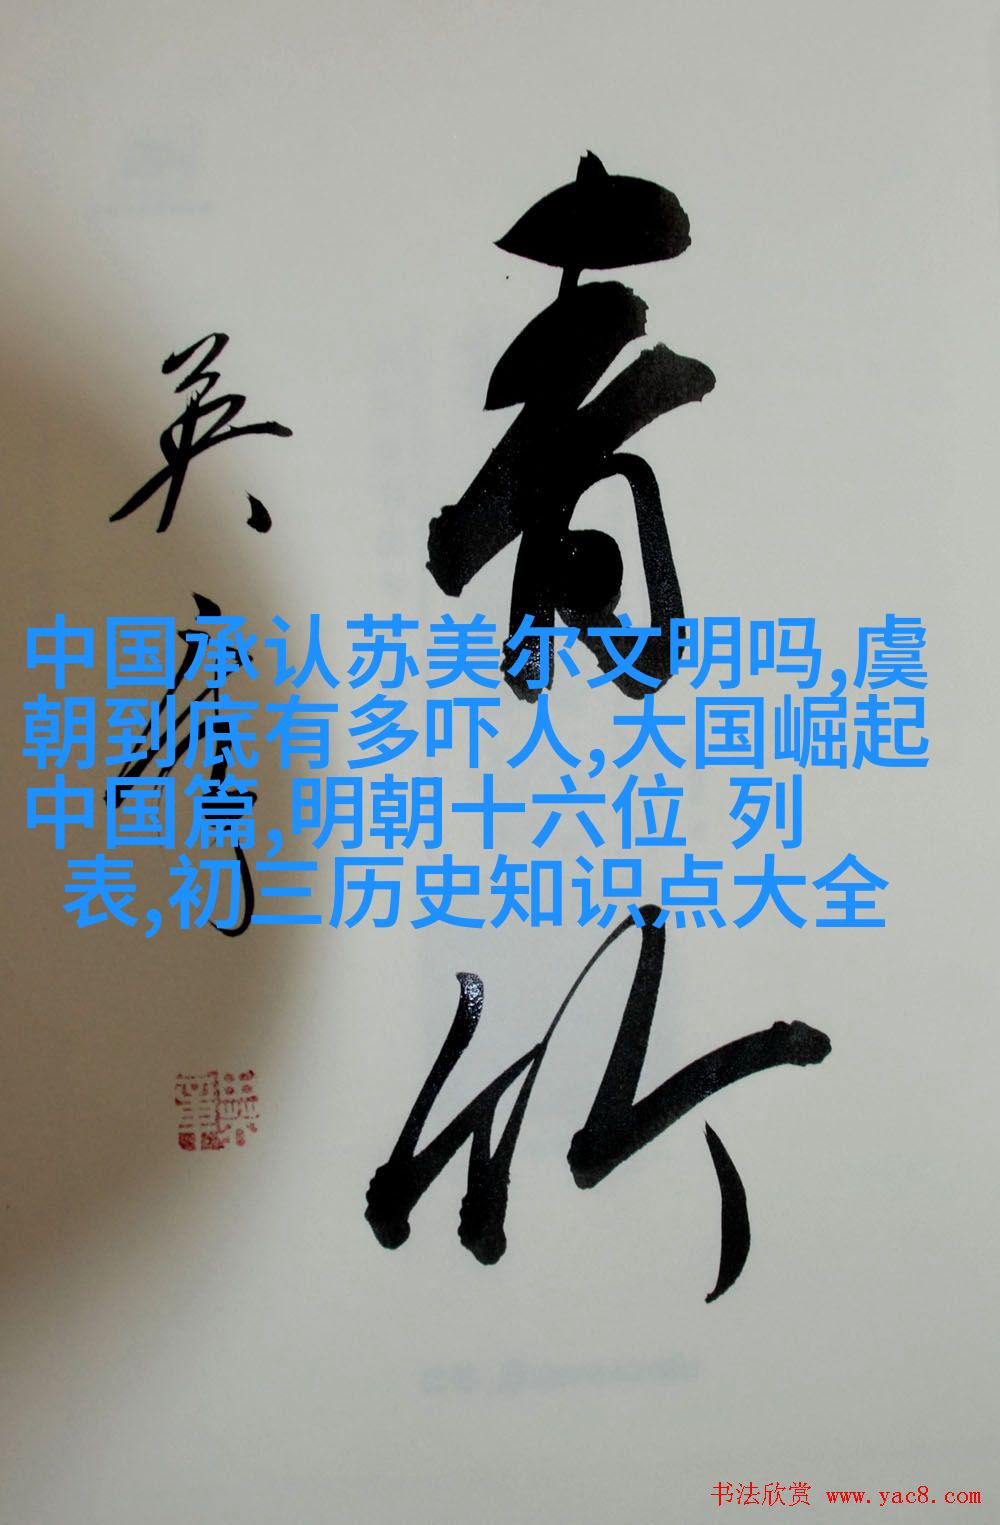 青竹
英唐
中国承认苏美尔文明吗,虞
朝到底有多吓人,大国崛起
中国篇,明朝十六位 列
表,初三历史知识点大全
书法欣赏 www.yac8.com